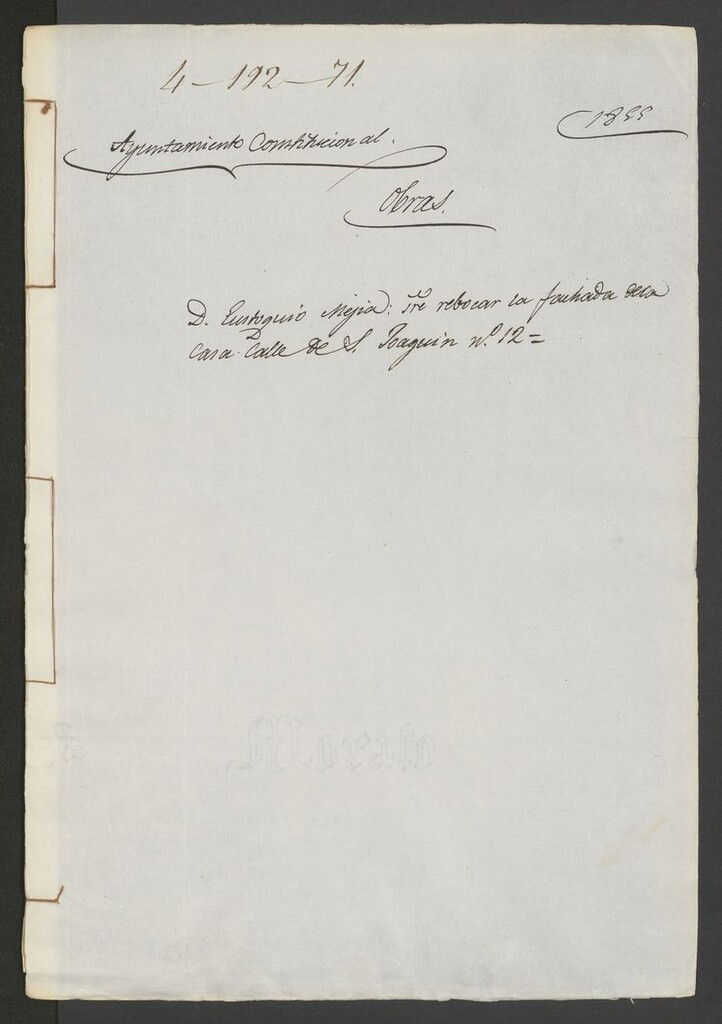 4-192-71.
1855
Ayuntamiento Constitucional.
Obras.
D. Eustoquio Mejia: sre rebocar la fachada dela
Casa Calle de S. Joaquin nº. 12=